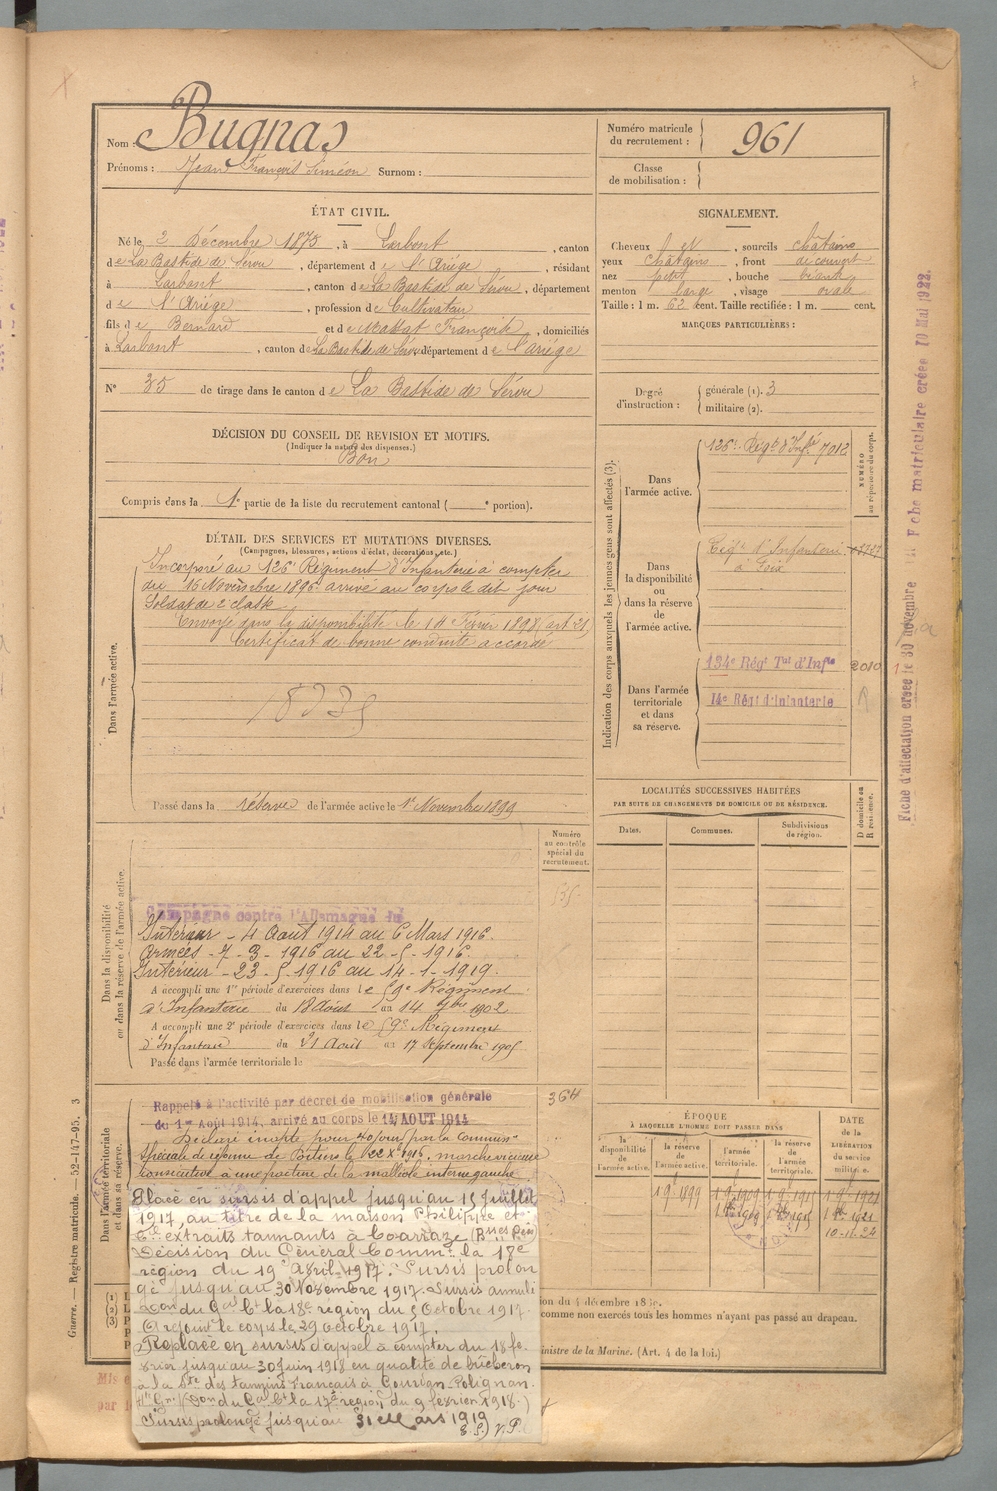 Nom : Bugnas
Prénoms : Jean François Siméon Surnom :
Numéro matricule du recrutement : 961
Classe de mobilisation :
ÉTAT CIVIL.
Né le 2 Décembre 1875, à Larbont, canton
de La Bastide de Sérou, département de l'Ariège, résidant
à Larbont, canton de La Bastide de Sérou, département
de l'Ariège, profession de Cultivateur
fils de Bernard et de Massat Françoise, domiciliés
à Larbont, canton de La Bastide de Sérou département de l'Ariège
N° 35 de tirage dans le canton de La Bastide de Sérou
SIGNALEMENT.
Cheveux et, sourcils châtains
yeux châtains, front découvert
nez petit, bouche
menton large, visage ovale
Taille : 1 m. 62 cent. Taille rectifiée : 1 m. cent.
MARQUES PARTICULIÈRES :
Degré d'instruction : générale (1). 3
militaire (2).
DÉCISION DU CONSEIL DE REVISION ET MOTIFS.
(Indiquer la nature des dispenses.)
Bon
Compris dans la 1e partie de la liste du recrutement cantonal ( e portion).
DÉTAIL DES SERVICES ET MUTATIONS DIVERSES.
(Campagnes, blessures, actions d'éclat, décorations, etc.)
Dans l'armée active.
Incorporé au 126e Régiment d'Infanterie à compter
du 16 Novembre 1896 arrivé au corps le dit jour
Soldat de 2e classe
Envoyé dans la disponibilité le 14 Février 1898, art 21
Certificat de bonne conduite accordé
Passé dans la réserve de l'armée active le 1er Novembre 1899
Indication des corps auxquels les jeunes gens sont affectés (3).
NUMÉRO au répertoire du corps.
Dans l'armée active.
126e Régt d'Infie 7012
Dans la disponibilité ou dans la réserve de l'armée active.
Régt d'Infanterie
à Foix
Dans l'armée territoriale et dans sa réserve.
134e Régt Tal d'Infie 2010
14e Régt d'Infanterie
Fiche d'affectation créée le 30 novembre
Fiche matriculaire créée 10 Mai 1922.
LOCALITÉS SUCCESSIVES HABITÉES
PAR SUITE DE CHANGEMENTS DE DOMICILE OU DE RÉSIDENCE.
Dates.
Communes.
Subdivisions de région.
D domicile ou R résidence.
Numéro au contrôle spécial du recrutement.
Dans la disponibilité ou dans la réserve de l'armée active.
Campagne contre l'Allemagne du
Intérieur - 4 Août 1914 au 6 Mars 1916.
Armées - 7 - 3 - 1916 au 22 - 5 - 1916.
Intérieur - 23 - 5 - 1916 au 14 - 1 - 1919.
A accompli une 1re période d'exercices dans le 59e Régiment
d'Infanterie du 18 Août au 14 7bre 1902
A accompli une 2e période d'exercices dans le 59e Régiment
d'Infanterie du 21 Août au 17 Septembre 1905
Passé dans l'armée territoriale le
Dans l'armée territoriale et dans sa réserve.
364
Rappelé à l'activité par décret de mobilisation générale
du 1er Août 1914, arrivé au corps le 14 AOUT 1914
Déclaré inapte pour 40 jours par la commissn
Spéciale de réforme de Poitiers le 22 Xe 1915. marche vicieuse
consécutive à une fracture de la malléole interne gauche
Placé en sursis d'appel jusqu'au 15 Juillet
1917, au titre de la maison Philippe et
Cie extraits tannants à Coarraze (Bsses Pées)
Décision du Général Commt la 18e
région du 19 Avril 1917. Sursis prolon
gé jusqu'au 30 Novembre 1917. Sursis annulé
Don du Gal Ct la 18e région du 5 Octobre 1917.
A rejoint le corps le 29 Octobre 1917.
Replacé en sursis d'appel à compter du 18 fé
vrier jusqu'au 30 Juin 1918 en qualité de bûcheron
à la Sté des tannins Français à Gourdan-Polignan
Hte Gne (Don du Gal Ct la 17e région du 9 février 1918.)
Sursis prolongé jusqu'au 31 Mars 1919
ÉPOQUE
À LAQUELLE L'HOMME DOIT PASSER DANS
DATE de la LIBÉRATION DU SERVICE militaire.
la disponibilité de l'armée active.
la réserve de l'armée active.
l'armée territoriale.
la réserve de l'armée territoriale.
1 9e 1899
1 9e 1909
1 9e 1915
1 9e 1921
10-11-22
comme non exercés tous les hommes n'ayant pas passé au drapeau.
Ministre de la Marine. (Art. 4 de la loi.)
Guerre. — Registre matricule. — 52-147-95. 3